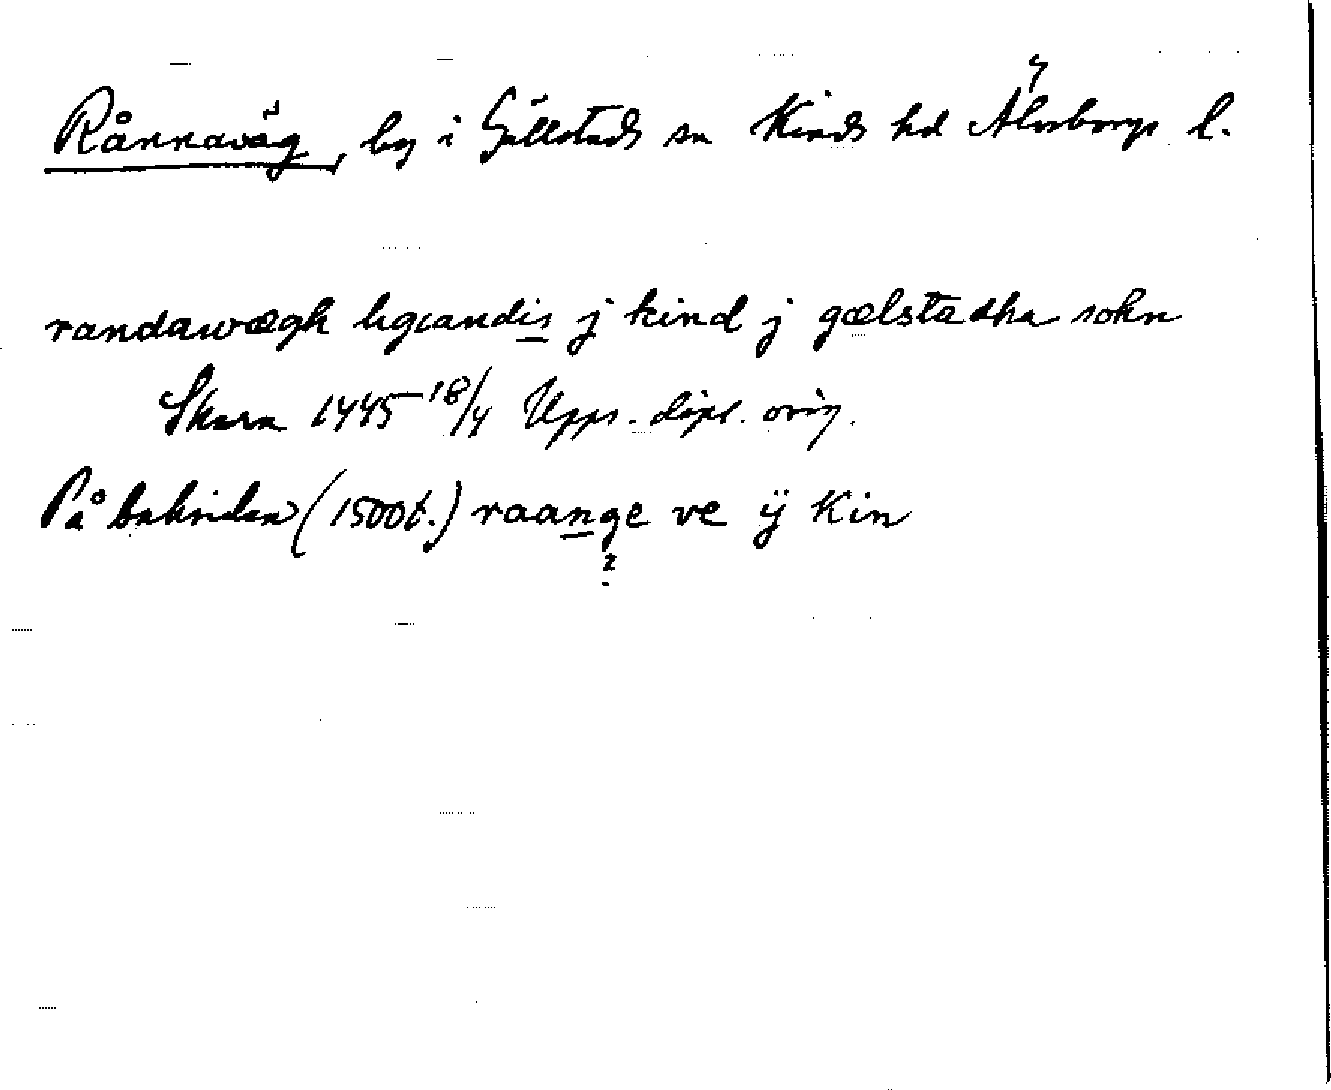 Rånnaväg, by i Gällstads sn Kinds hd Älvsborgs l.
randawægh ligiandis j kind j gælstadha sokn
Skara 1445 18/4 Upps. dipl. orig.
På baksidan (1500t.) raange ve ÿ Kin
?